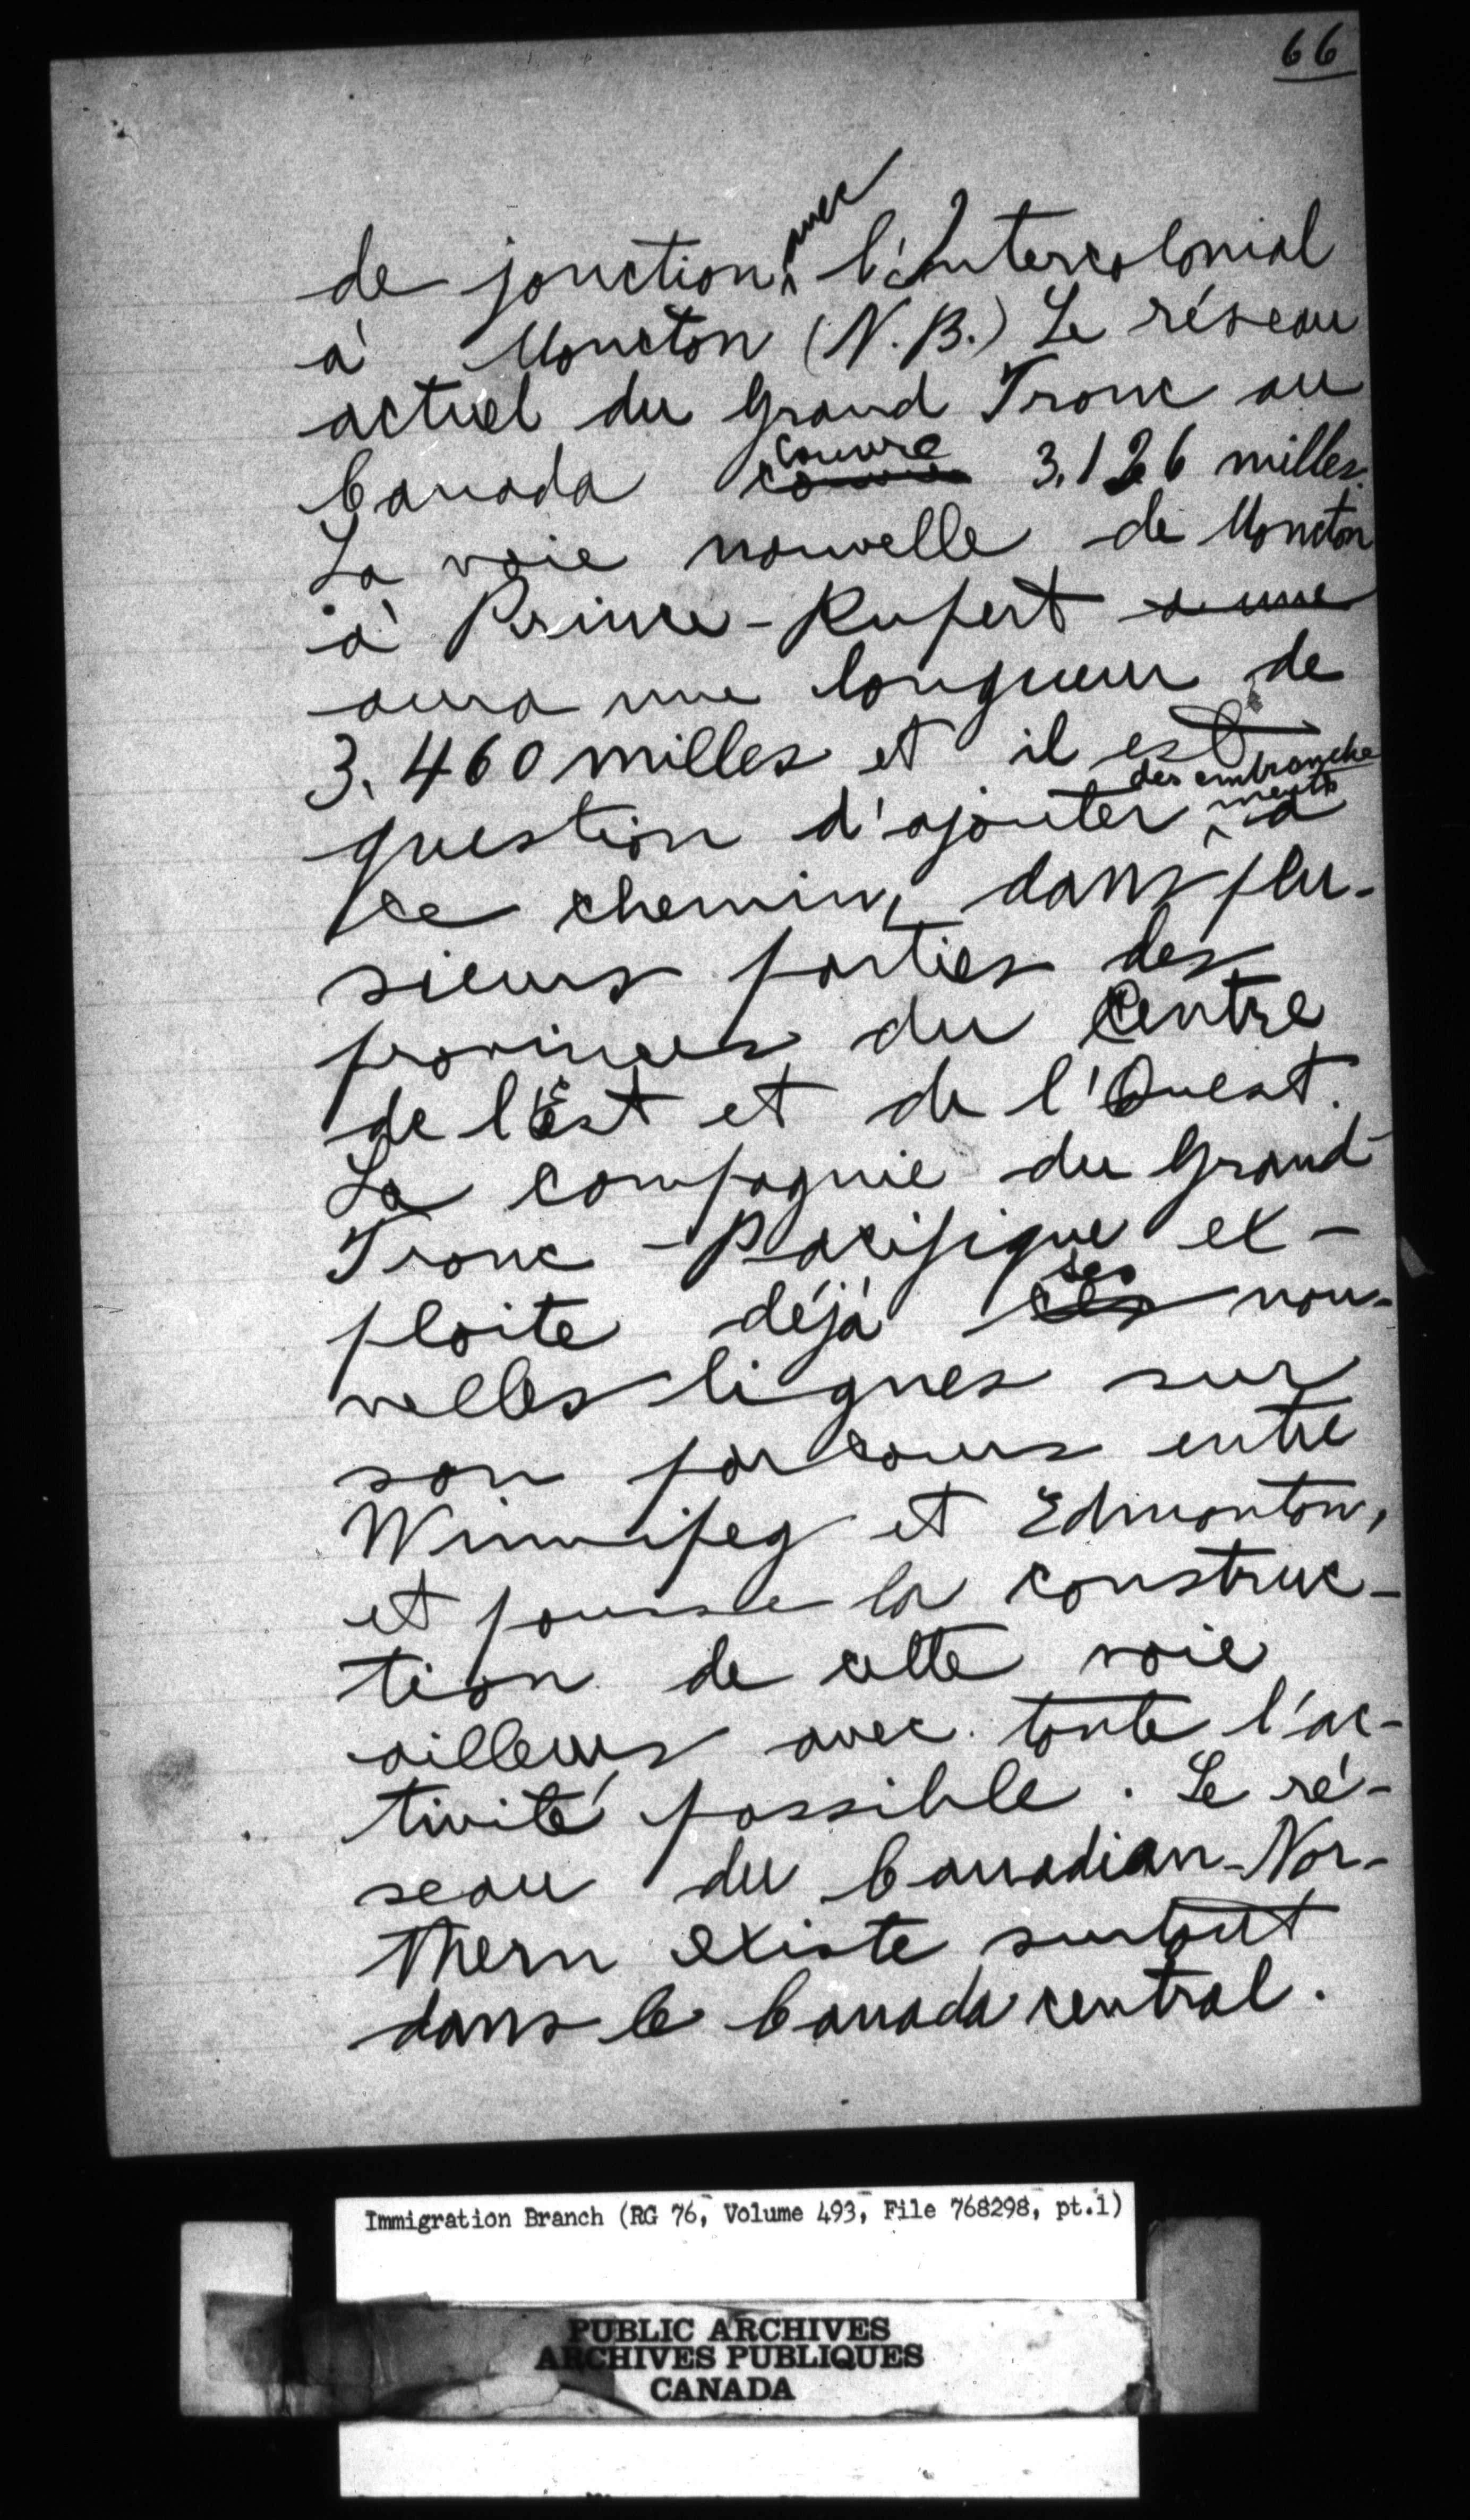 66
de jonction avec l'Intercolonial
à Moncton (N.B.) Le réseau
actuel du Grand Tronc au
Canada couvre 3.126 milles.
La voie nouvelle de Moncton
à Prince-Rupert a une
aura une longueur de
3.460 milles et il est
question d'ajouter des embranchements à
ce chemin, dans plu-
sieurs parties des
provinces du Centre
de l'Est et de l'Ouest.
La compagnie du Grand-
Tronc-Pacifique ex-
ploite déjà ses nou-
velles lignes sur
son parcours entre
Winnipeg et Edmonton,
et pousse la construc-
tion de cette voie
ailleurs avec toute l'ac-
tivité possible. Le ré-
seau du Canadian-Nor-
thern existe surtout
dans le Canada central.
Immigration Branch (RG 76, Volume 493, File 768298, pt.1)
PUBLIC ARCHIVES
ARCHIVES PUBLIQUES
CANADA